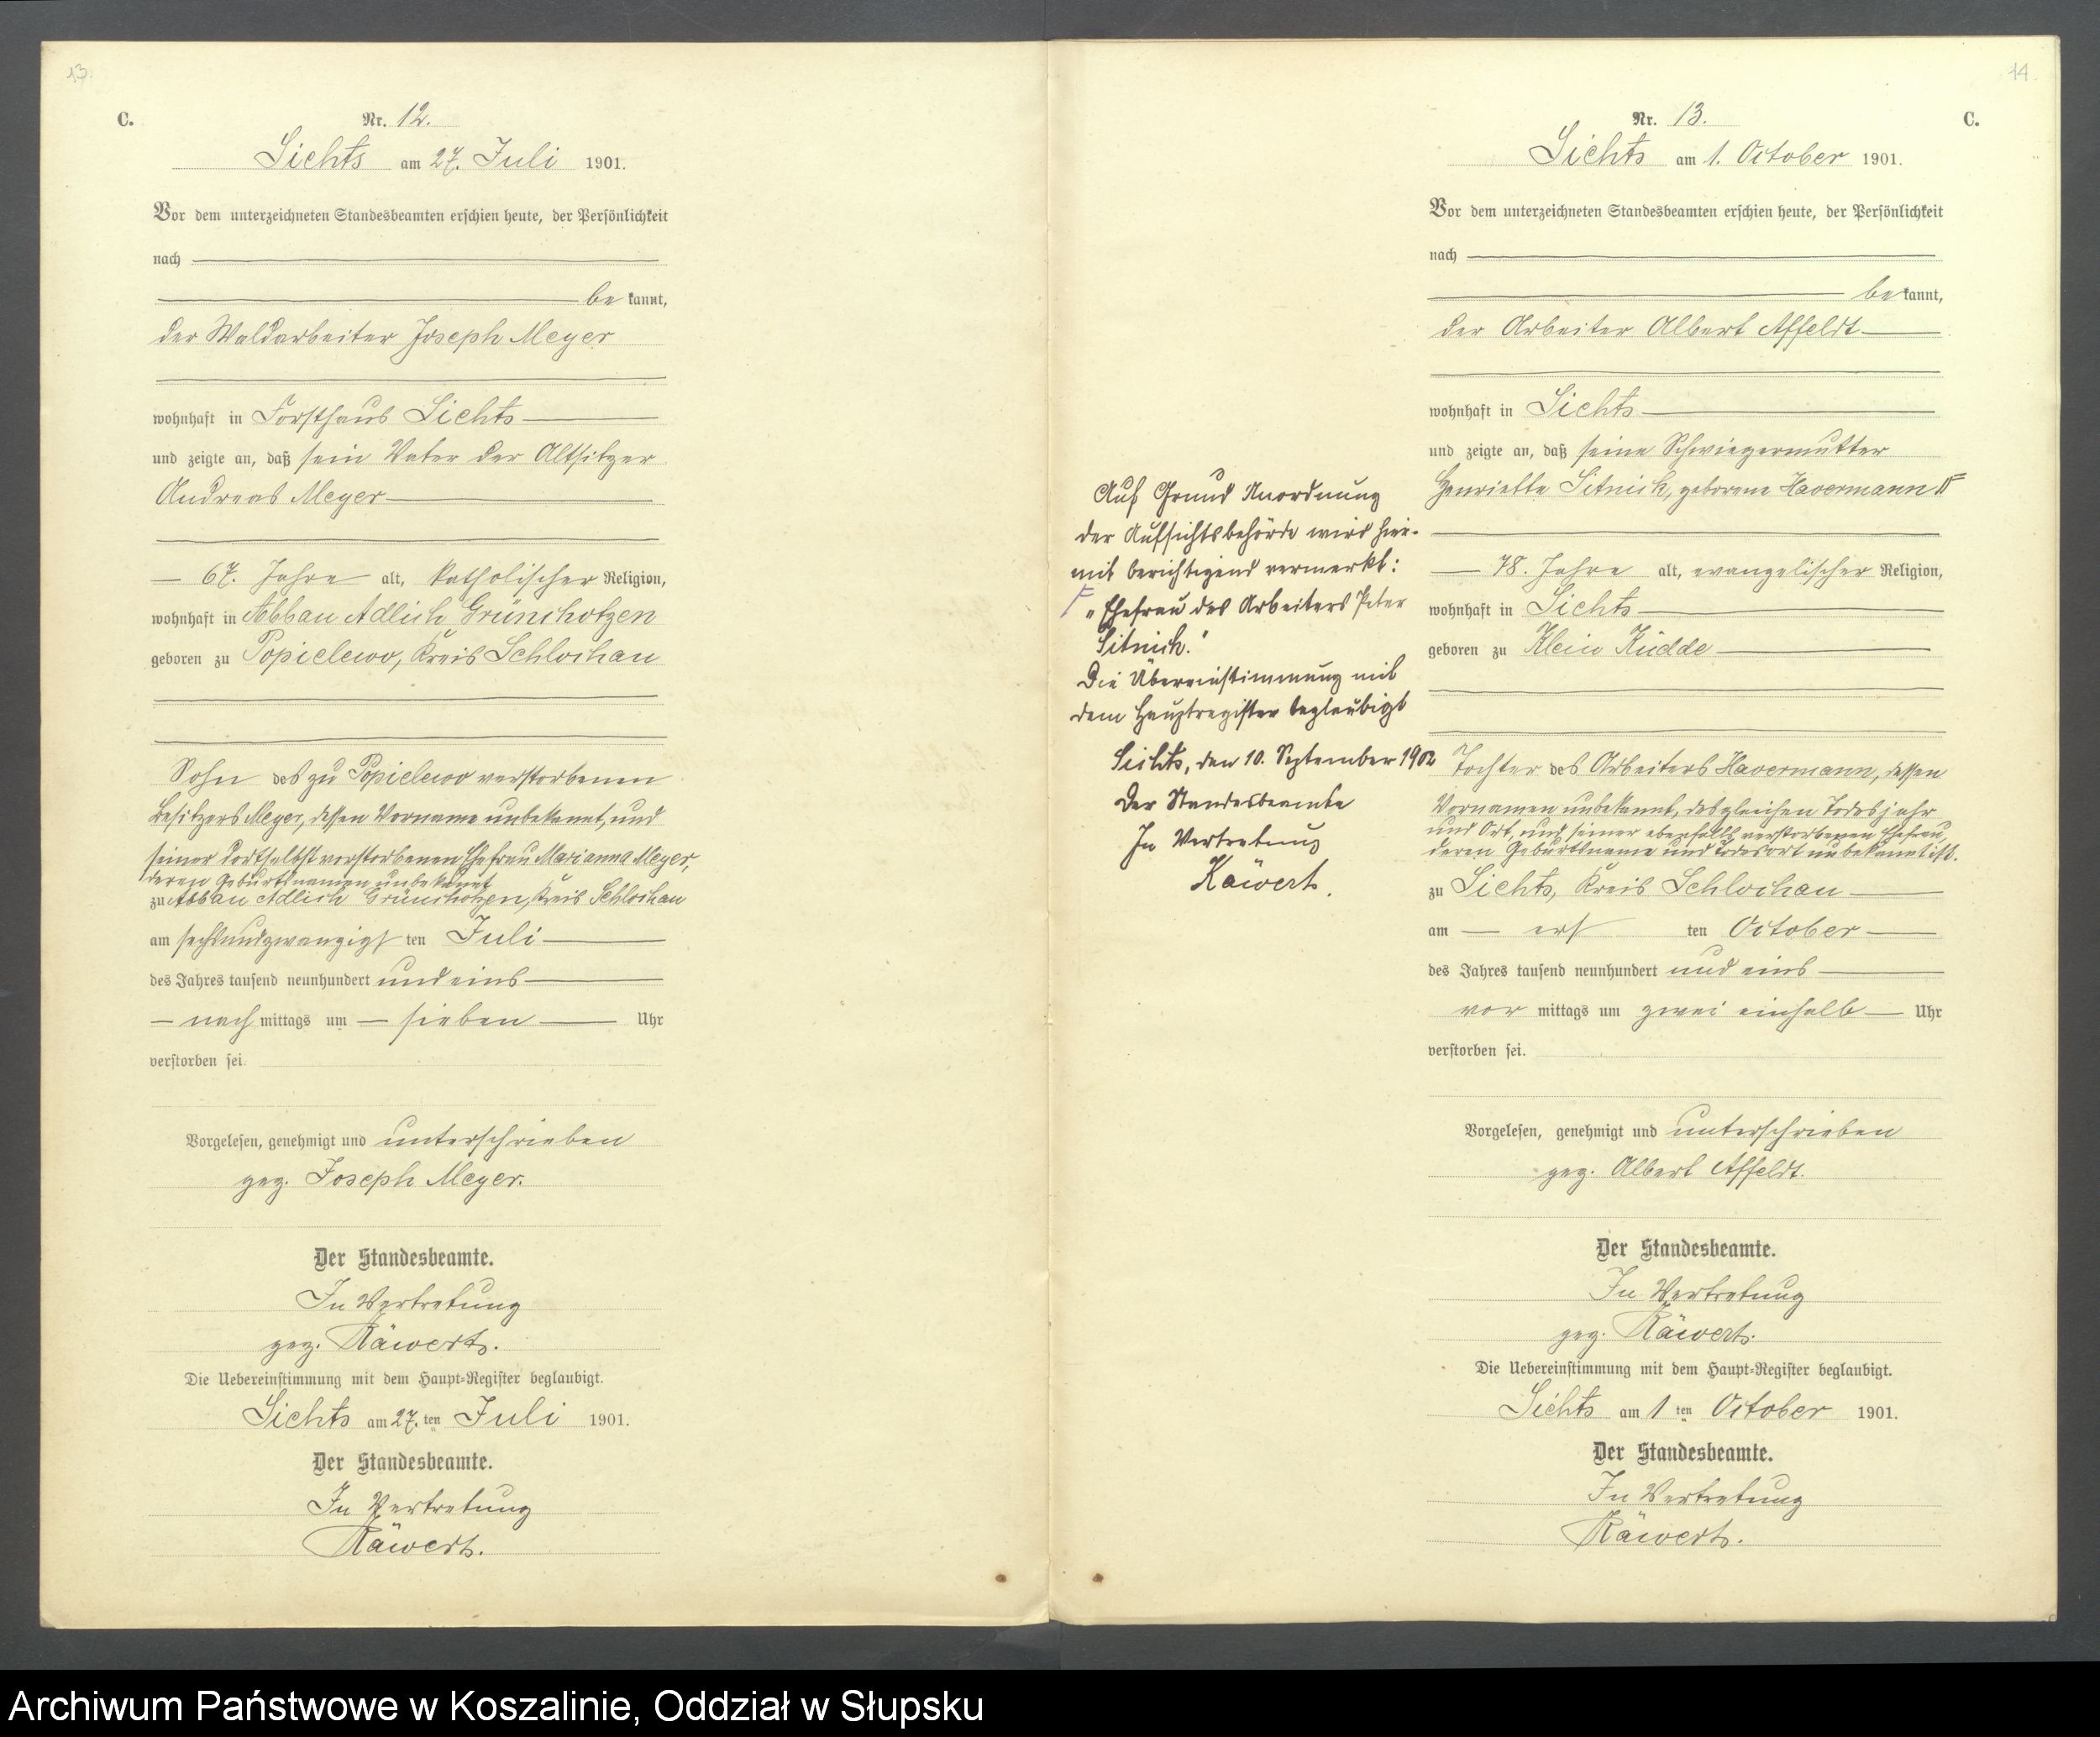 13.
C.
Nr. 12.
Lichts am 27. Juli 1901.
Vor dem unterzeichneten Standesbeamten erschien heute, der Persönlichkeit
nach
be kannt,
der Waldarbeiter Joseph Meyer
wohnhaft in Forsthaus Lichts
und zeigte an, daß sein Vater der Altsitzer
Andreas Meyer
67. Jahre alt, katholischer Religion,
wohnhaft in Abbau Adlich Grünchotzen
geboren zu Popielewo, Kreis Schlochau
Sohn des zu Popielewo verstorbenen
Besitzers Meyer, dessen Vorname unbekannt, und
seiner dortselbst verstorbenen Ehefrau Marianna Meyer,
deren Geburtsnamen unbekannt
zu Abbau Adlich Grünchotzen, Kreis Schlochau
am sechsundzwanzigsten Juli
des Jahres tausend neunhundert und eins
nach mittags um sieben Uhr
verstorben sei.
Vorgelesen, genehmigt und unterschrieben
gez. Joseph Meyer.
Der Standesbeamte.
In Vertretung
gez. Käwert.
Die Uebereinstimmung mit dem Haupt-Register beglaubigt.
Lichts am 27. ten Juli 1901.
Der Standesbeamte.
In Vertretung
Käwert.
14.
C.
Nr. 13.
Lichts am 1. October 1901.
Vor dem unterzeichneten Standesbeamten erschien heute, der Persönlichkeit
nach
be kannt,
der Arbeiter Albert Affeldt
wohnhaft in Lichts
und zeigte an, daß seine Schwiegermutter
Henriette Litnick, geborene Havermann
78. Jahre alt, evangelischer Religion,
wohnhaft in Lichts
geboren zu Klein Küdde
Tochter des Arbeiters Havermann, dessen
Vornamen unbekannt, desgleichen Todesjahr
und Ort, und seiner ebenfalls verstorbenen Ehefrau,
deren Geburtsname und Todesort unbekannt ist.
zu Lichts, Kreis Schlochau
am ersten October
des Jahres tausend neunhundert und eins
vor mittags um zwei einhalb Uhr
verstorben sei.
Vorgelesen, genehmigt und unterschrieben
gez. Albert Affeldt.
Der Standesbeamte.
In Vertretung
gez. Käwert.
Die Uebereinstimmung mit dem Haupt-Register beglaubigt.
Lichts am 1 ten October 1901.
Der Standesbeamte.
In Vertretung
Käwert.
Auf Grund Anordnung
der Aufsichtsbehörde wird hier-
mit berichtigend vermerkt:
„Ehefrau des Arbeiters Peter
Litnick."
Die Übereinstimmung mit
dem Hauptregister beglaubigt
Lichts, den 10. September 1902
Der Standesbeamte
In Vertretung
Käwert.
Archiwum Państwowe w Koszalinie, Oddział w Słupsku